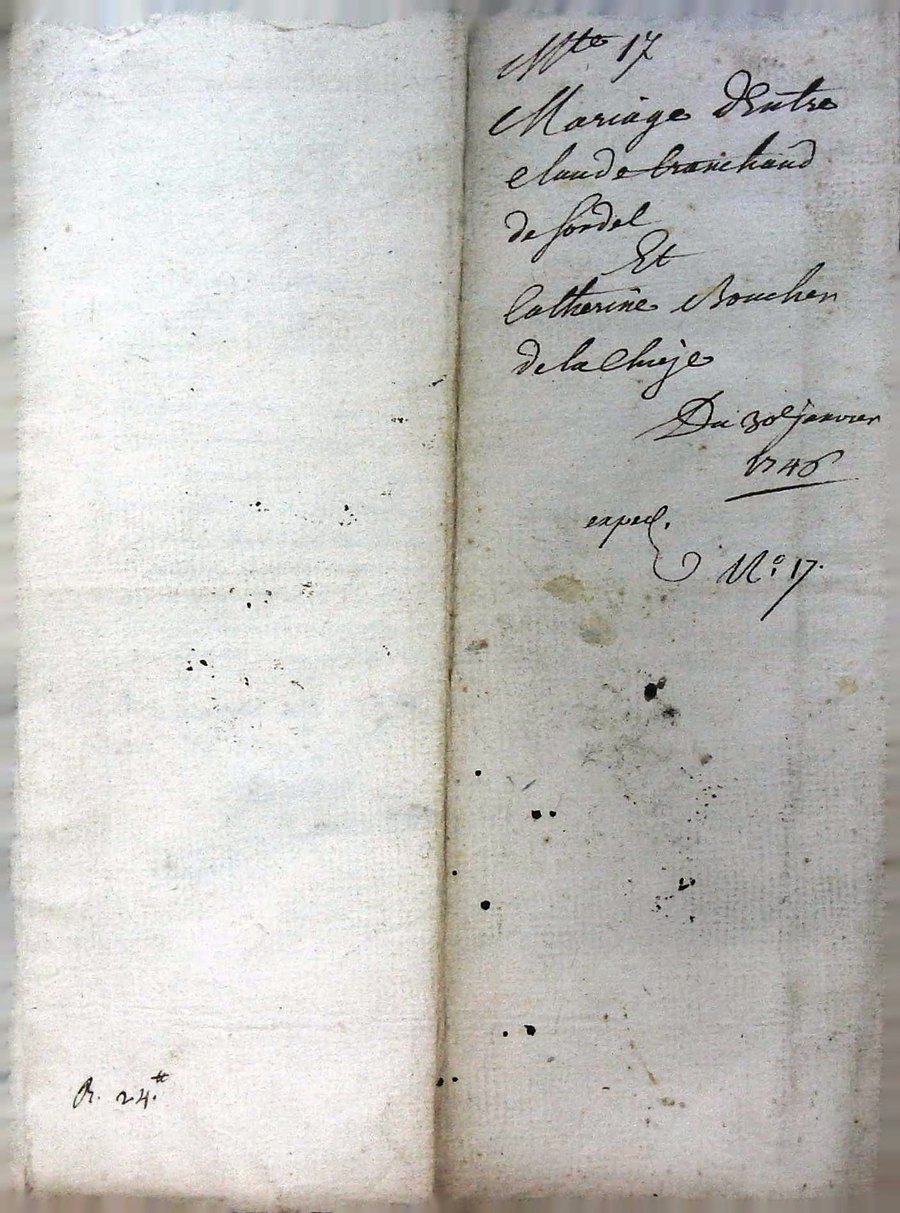 Mte 17
Mariage dEntre
Claude branchaud
de Sordel
Et
Catherine Boucher
de la Chieze
Du 30e janvier
1746
exped.
No. 17.
R. 24.#